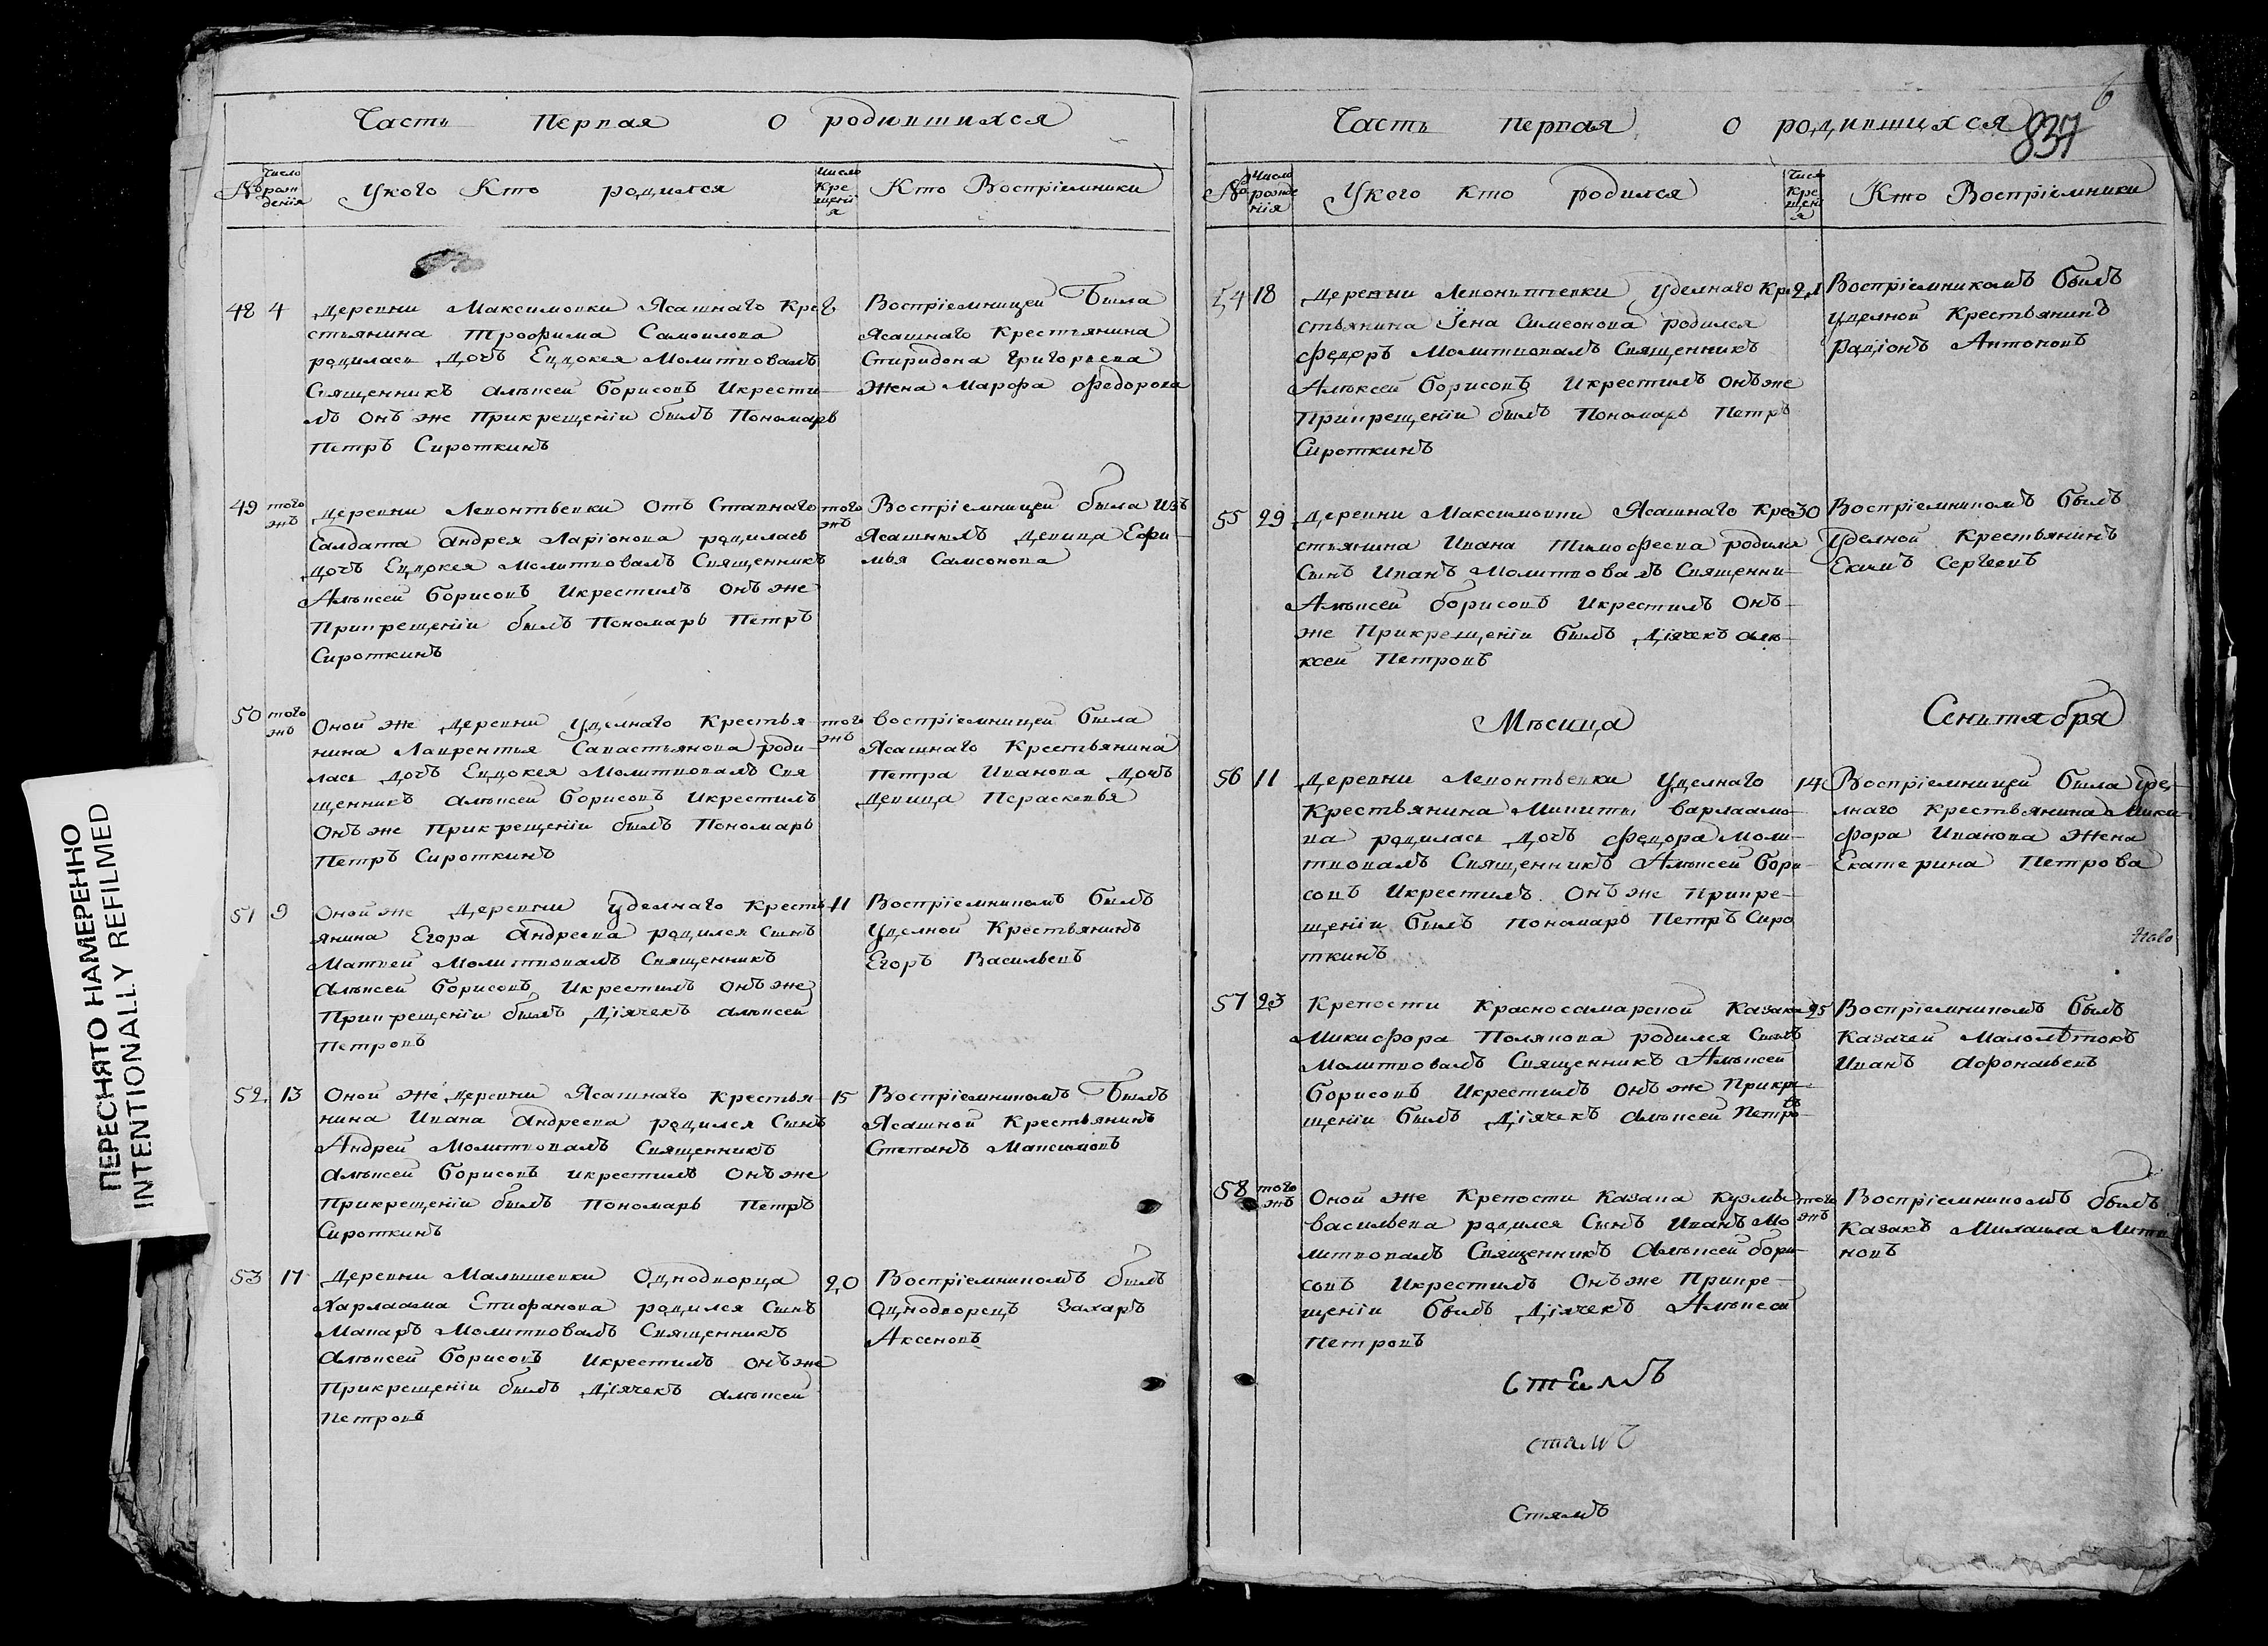 Часть Первая О родившихся
№ Число рожденія Укого Кто родился Число Крещенія Кто Воспріемники
48 4 Деревни Максимовки Ясашнаго Кре 8
стьянина Трофима Самоилова
родилась Дочь Евдокея Молитвовалъ
Священникъ Алѣксей Борисовъ Икрести-
лъ Онъ же Прикрещеніи былъ Пономарь
Петръ Сироткинъ
Воспріемницей Была
Ясашнаго Крестьянина
Спиридона Григорьева
Жена Марфа Федорова
49 того жъ Деревни Левонтьевки Отъ Ставнаго того жъ
Салдата Андрея Ларіонова родилась
Дочь Евдокея Молитвовалъ Священникъ
Алѣксей Борисовъ Икрестилъ Онъ же
Прикрещеніи былъ Пономарь Петръ
Сироткинъ
Воспріемницей была Изъ
Ясашныхъ Девица Ефи-
мья Самсонова
50 того жъ Оной же Деревни Уделнаго Крестья- того жъ
нина Лаврентья Савастьянова роди-
лась Дочь Евдокея Молитвовалъ Свя
щенникъ Алѣксей Борисовъ Икрестилъ
Онъ же Прикрещеніи былъ Пономарь
Петръ Сироткинъ
Воспріемницей была
Ясашнаго Крестьянина
Петра Иванова Дочь
Девица Пераскевья
51 9 Оной же Деревни Уделнаго Кресть- 11
янина Егора Андреева родился Сынъ
Матвей Молитвовалъ Священникъ
Алѣксей Борисовъ Икрестилъ Онъ же
Прикрещеніи былъ Діячекъ Алѣксей
Петровъ
Воспріемникомъ былъ
Уделной Крестьянинъ
Егоръ Васильевъ
52 13 Оной же Деревни Ясашнаго Крестья- 15
нина Ивана Андреева родился Сынъ
Андрей Молитвовалъ Священникъ
Алѣксей Борисовъ Икрестилъ Онъ же
Прикрещеніи былъ Пономарь Петръ
Сироткинъ
Воспріемникомъ Былъ
Ясашной Крестьянинъ
Степанъ Максимовъ
53 17 Деревни Малышевки Однодворца 20
Харлаама Епифанова родился Сынъ
Макаръ Молитвовалъ Священникъ
Алѣксей Борисовъ Икрестилъ Онъ же
Прикрещеніи былъ Діячекъ Алѣксей
Петровъ
Воспріемникомъ былъ
Однодворецъ Захаръ
Аксеновъ
ПЕРЕСНЯТО НАМЕРЕННО
INTENTIONALLY REFILMED
6
837
Часть Первая О родившихся
№ Число рожденія Укого Кто родился Число Крещенія Кто Воспріемники
54 18 Деревни Левоньтьевки Уделнаго Кре 21
стьянина Їена Симеонова родился
Федоръ Молитвовалъ Священникъ
Алѣксей Борисовъ Икрестилъ Онъ же
Прикрещеніи былъ Пономарь Петръ
Сироткинъ
Воспріемникомъ былъ
Уделной Крестьянинъ
Радіонъ Антоновъ
55 29 Деревни Максимовки Ясашнаго Кре 30
стьянина Ивана Тимофеева родился
Сынъ Иванъ Молитвовалъ Священни-
Алѣксей Борисовъ Икрестилъ Онъ-
же Прикрещеніи былъ Діячекъ Алѣ-
ксей Петровъ
Воспріемникомъ былъ
Уделной Крестьянинъ
Екимъ Сергеевъ
Мѣсица Сеньтября
56 11 Деревни Левонтьевки Уделнаго 14
Крестьянина Микиты Варлаамо-
ва родилась Дочь Федора Моли-
твовалъ Священникъ Алѣксей Бори-
совъ Икрестилъ Онъ же Прикре-
щеніи былъ Пономарь Петръ Сиро
ткинъ
Воспріемницей была Уде-
лнаго Крестьянина Мики-
фора Иванова Жена
Екатерина Петрова
57 23 Крепости Красносамарской Казака 25
Микифора Полякова родился Сынъ
Молитвовалъ Священникъ Алѣксей
Борисовъ Икрестилъ Онъ же Прикре-
щеніи былъ Діячекъ Алѣксей Петровъ
Воспріемникомъ былъ
Казачей Малолѣтокъ
Иванъ Афонашевъ
58 того жъ Оной же Крепости Казака Кузмы того жъ
Васильева родился Сынъ Иванъ Мо
литвовалъ Священникъ Алѣксей Бори-
совъ Икрестилъ Онъ же Прикре-
щеніи былъ Діячекъ Алѣксей
Петровъ
Воспріемникомъ былъ
Казакъ Михаила Литви
новъ